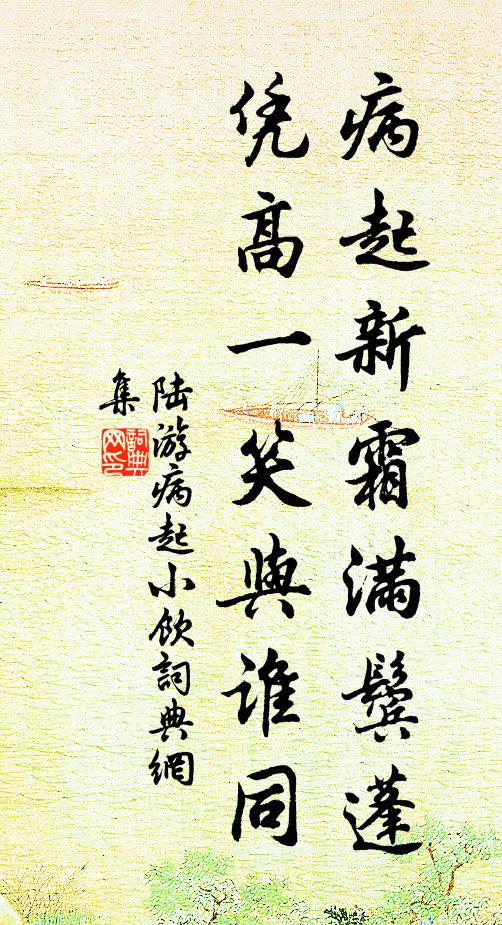 病起新霜满鬓蓬
凭高一笑與谁同
陆游病起小饮詞典網
集
詞典